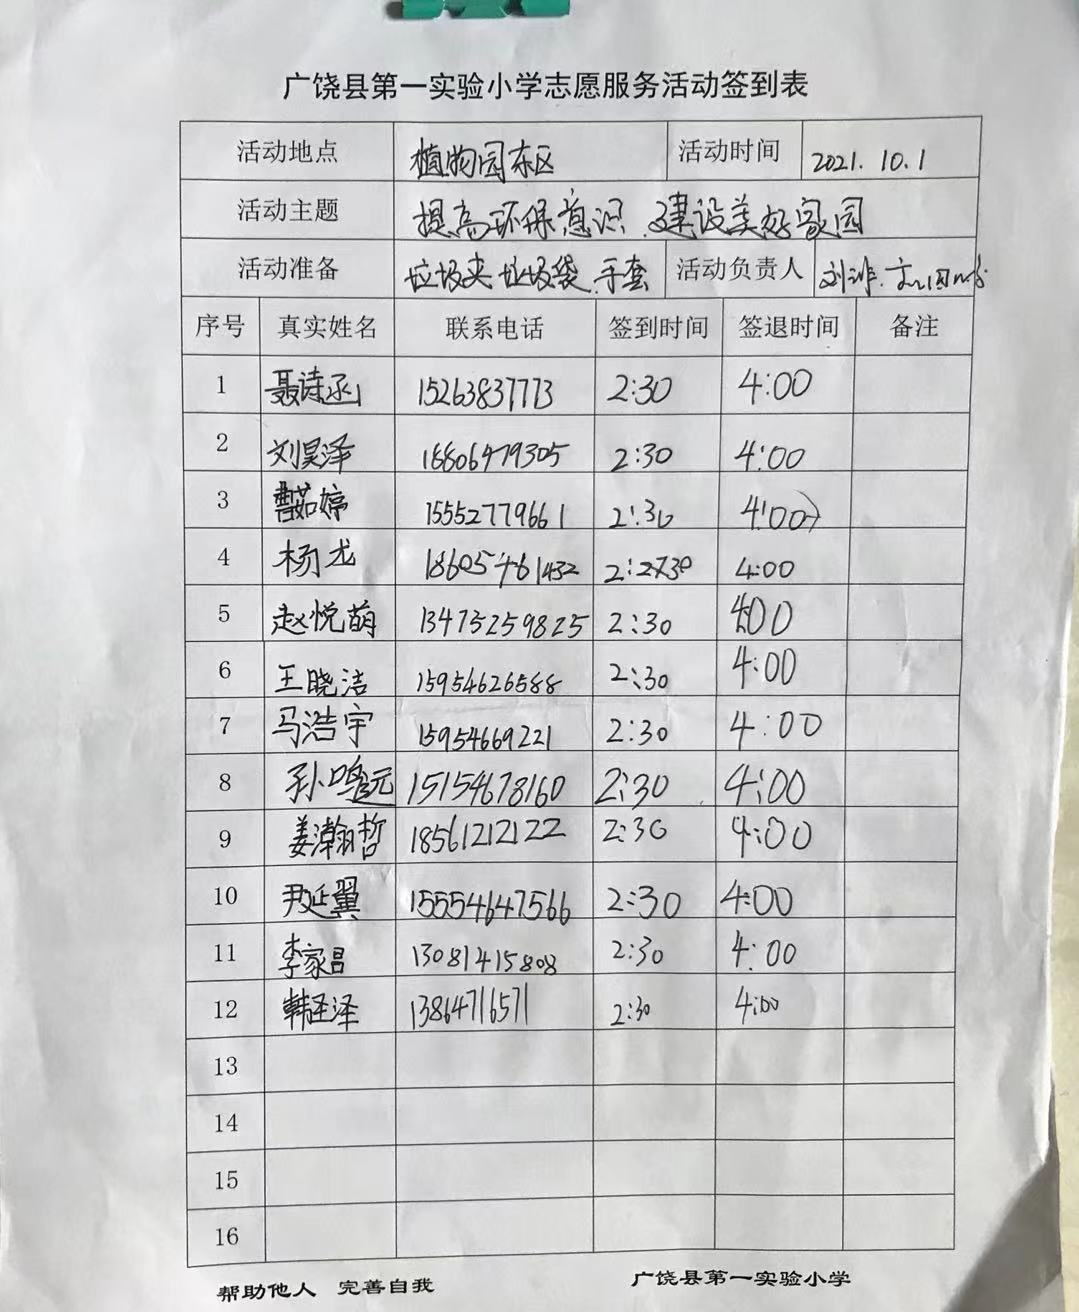 广饶县第一实验小学志愿服务活动签到表
活动地点 植物园东区 活动时间 2021.10.1
活动主题 提高环保意识 建设美好家园
活动准备 垃圾夹 垃圾袋 手套 活动负责人
序号 真实姓名 联系电话 签到时间 签退时间 备注
1 聂诗函 15263837773 2:30 4:00
2 刘昊泽 18806479305 2:30 4:00
3 曹茹婷 15552779661 2:30 4:00
4 杨尤 18605461432 2:30 4:00
5 赵悦萌 13475259825 2:30 4:00
6 王晓洁 15954626588 2:30 4:00
7 马浩宇 15954669221 2:30 4:00
8 15154678160 2:30 4:00
9 姜瀚哲 18561212122 2:30 4:00
10 尹延翼 15554647566 2:30 4:00
11 李家昌 13081415808 2:30 4:00
12 韩圣泽 13864716571 2:30 4:00
13
14
15
16
帮助他人 完善自我 广饶县第一实验小学